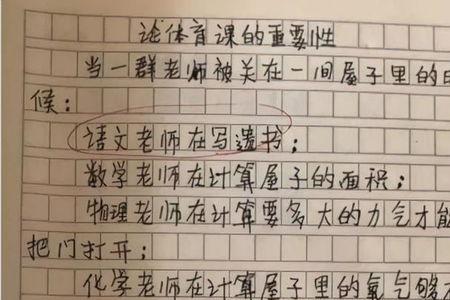 论体育课的重要性
当一群老师被关在一间屋子里的时
候：
语文老师在写遗书；
数学老师在计算屋子的面积；
物理老师在计算要多大的力气才能
把门打开；
化学老师在计算屋子里的氧气够